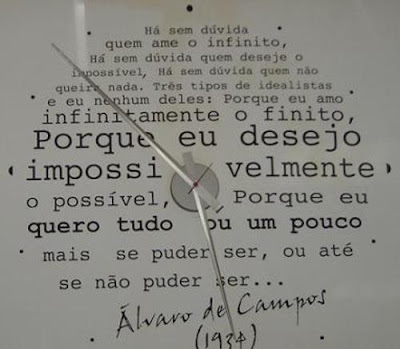 Há sem dúvida
quem ame o infinito,
Há sem dúvida quem deseje o
impossível, Há sem dúvida quem não
queira nada. Três tipos de idealistas
e eu nenhum deles: Porque eu amo
infinitamente o finito,
Porque eu desejo
impossi velmente
o possível, Porque eu
quero tudo ou um pouco
mais se puder ser, ou até
se não puder ser...
Álvaro de Campos
(1934)